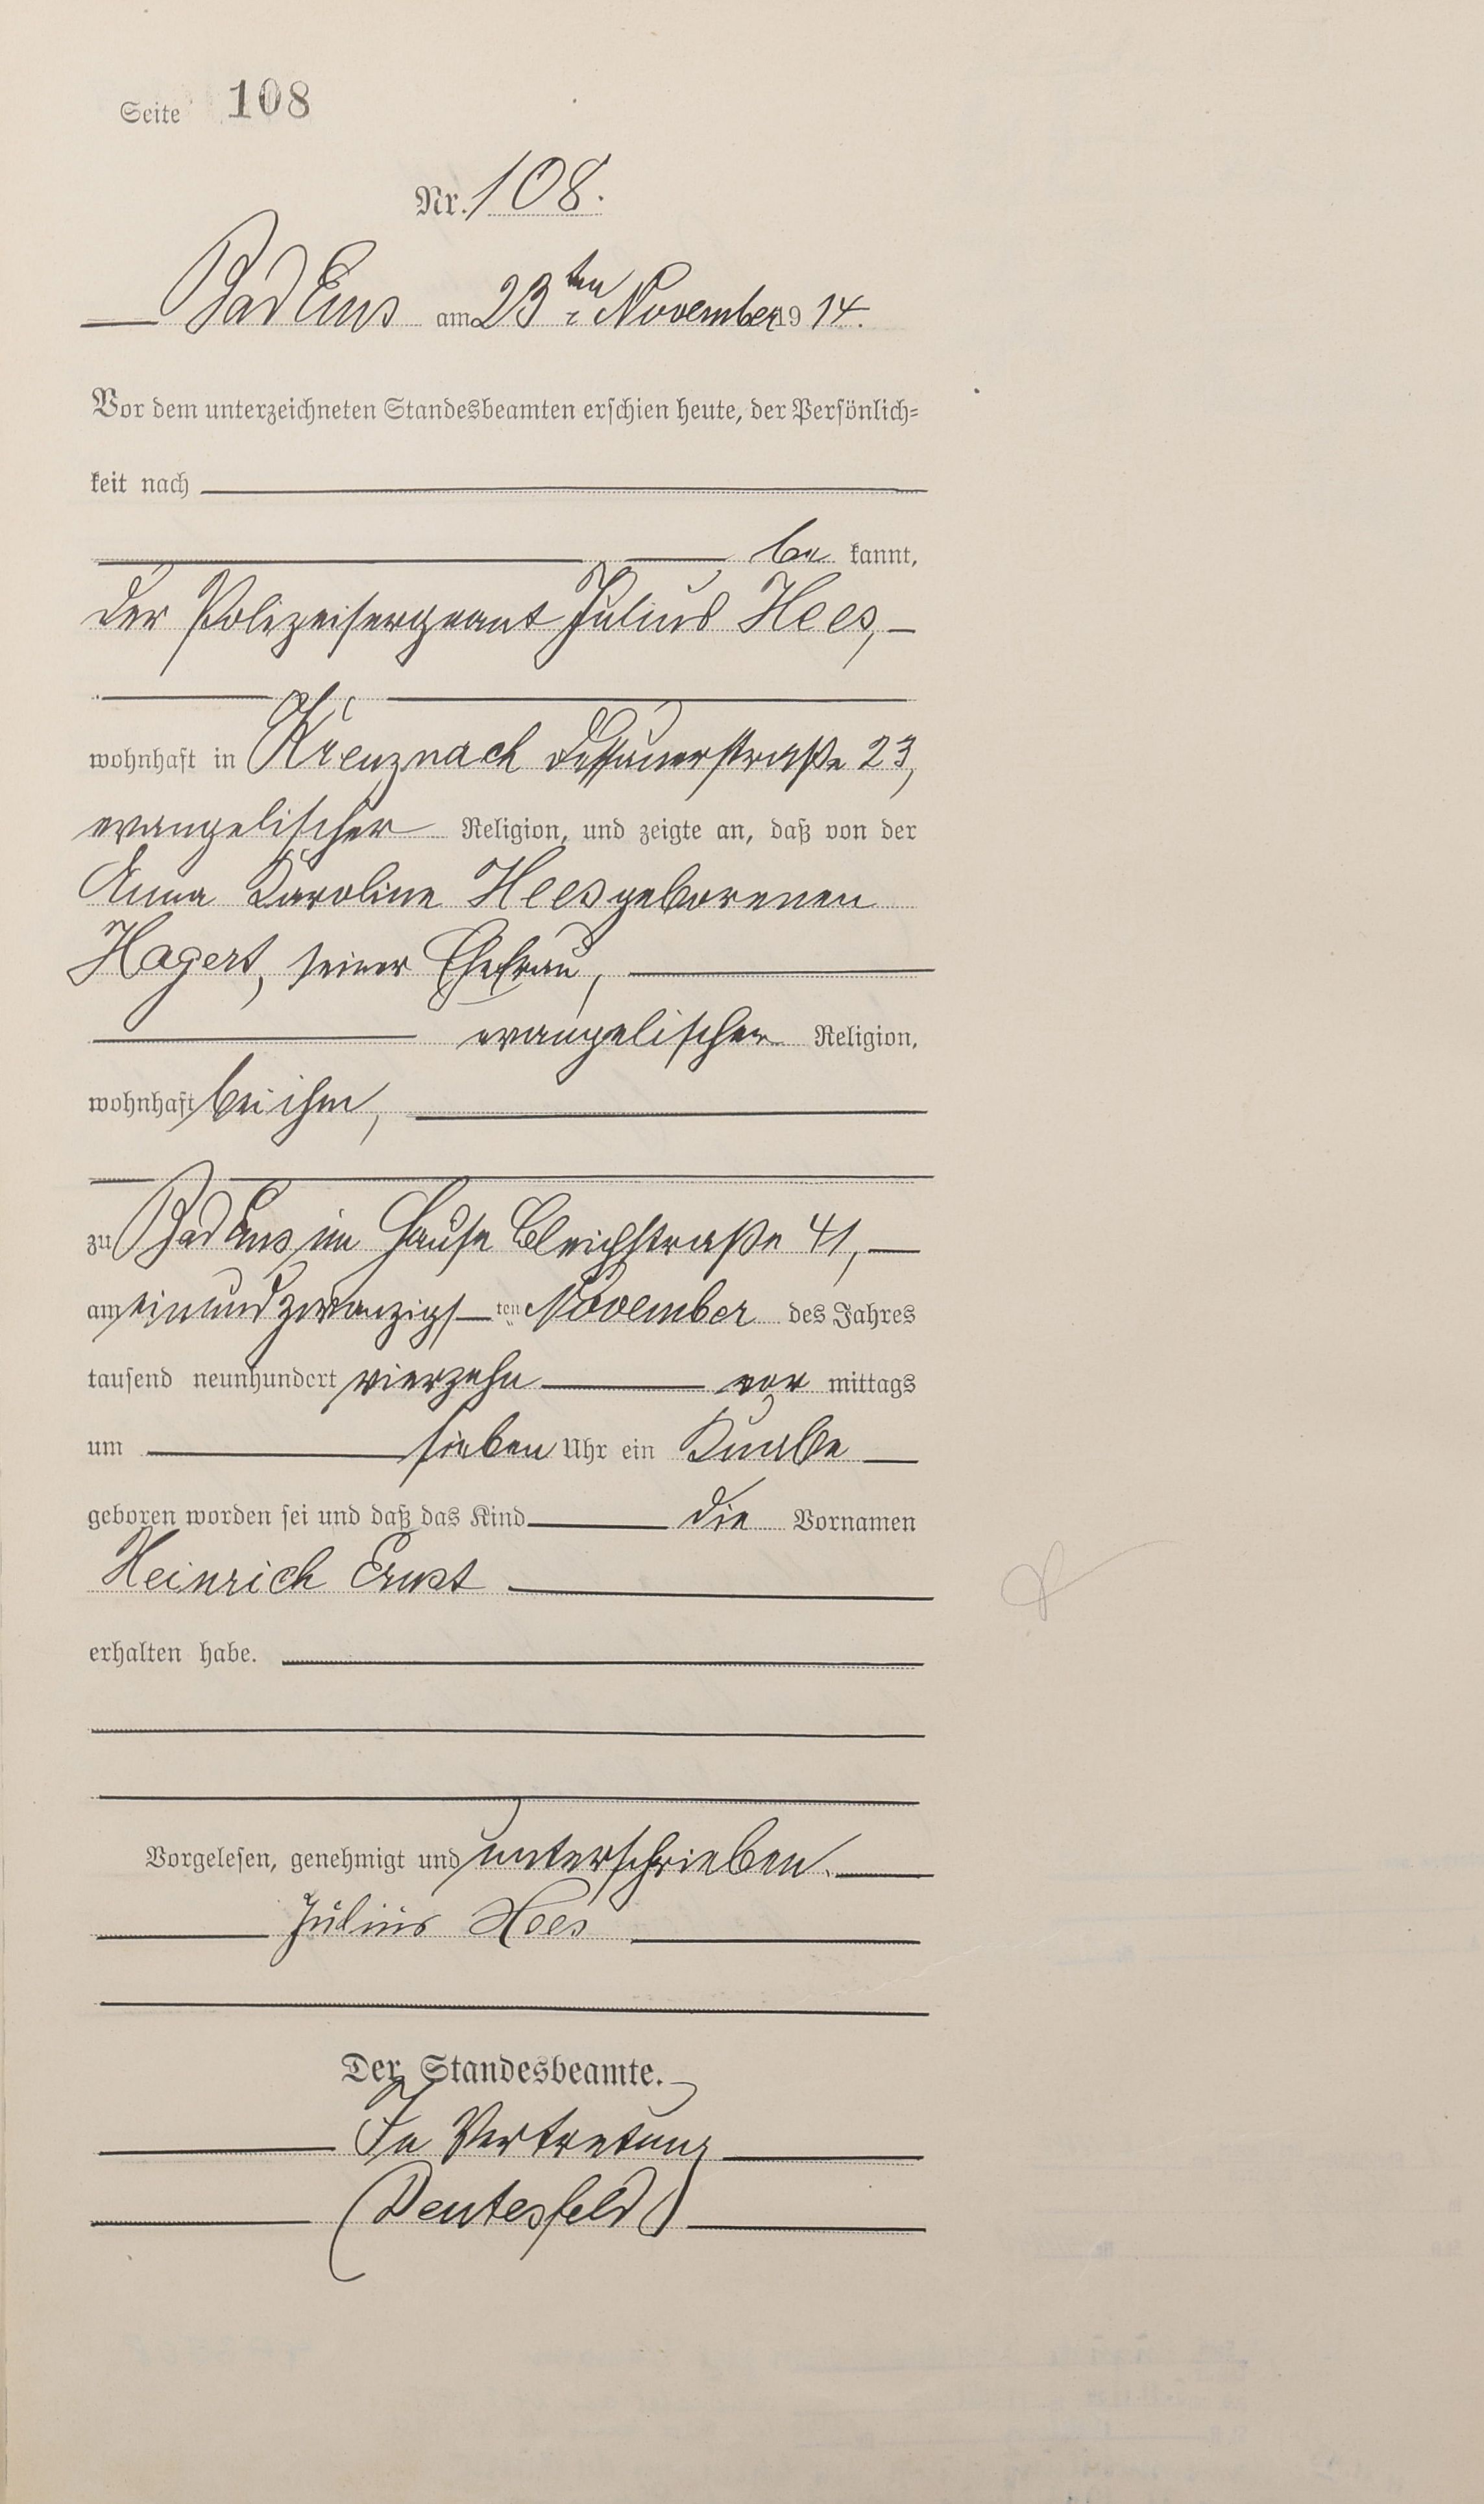 Seite 108
Nr. 108.
Bad Ems am 23ten November 1914.
Vor dem unterzeichneten Standesbeamten erschien heute, der Persönlich=
keit nach
be kannt,
der Polizeisergeant Julius Hees,
wohnhaft in Kreuznach Dessauerstraße 23,
evangelischer Religion, und zeigte an, daß von der
Anna Karoline Hees geborenen
Hagert, seiner Ehefrau,
evangelischer Religion,
wohnhaft bei ihm,
zu Bad Ems im Hause Bleichstraße 41,
am einundzwanzigsten November des Jahres
tausend neunhundert vierzehn vor mittags
um sieben Uhr ein Knabe
geboren worden sei und daß das Kind die Vornamen
Heinrich Ernst
erhalten habe.
Vorgelesen, genehmigt und unterschrieben.
Julius Hees
Der Standesbeamte.
In Vertretung
(Deutesfeld)